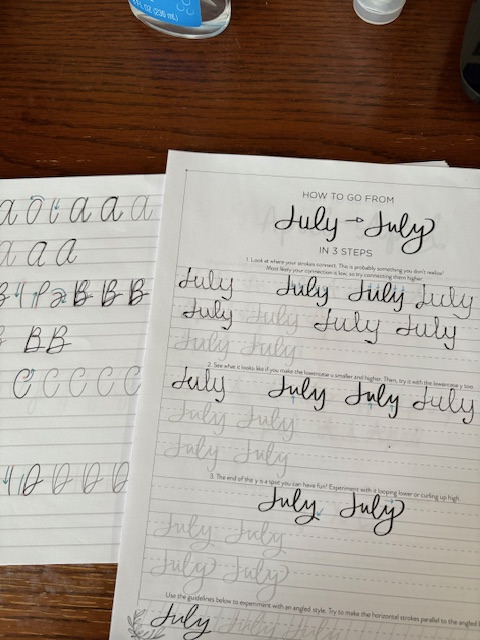 FL OZ (236 mL)
a a a a a
a a a
B B B B
B B
C C C C C
HOW TO GO FROM
July → July
IN 3 STEPS
1. Look at where your strokes connect. This is probably something you don't realize!
Most likely your connection is low, so try connecting them higher.
July July July July
July July July July
July July
2. See what it looks like if you make the lowercase u smaller and higher. Then, try it with the lowercase y too.
July July July July
July July
July July
3. The end of the y is a spot you can have fun! Experiment with it looping lower or curling up high.
July July
July July
July July
Use the guidelines below to experiment with an angled style. Try to make the horizontal strokes parallel to the angled
July July July